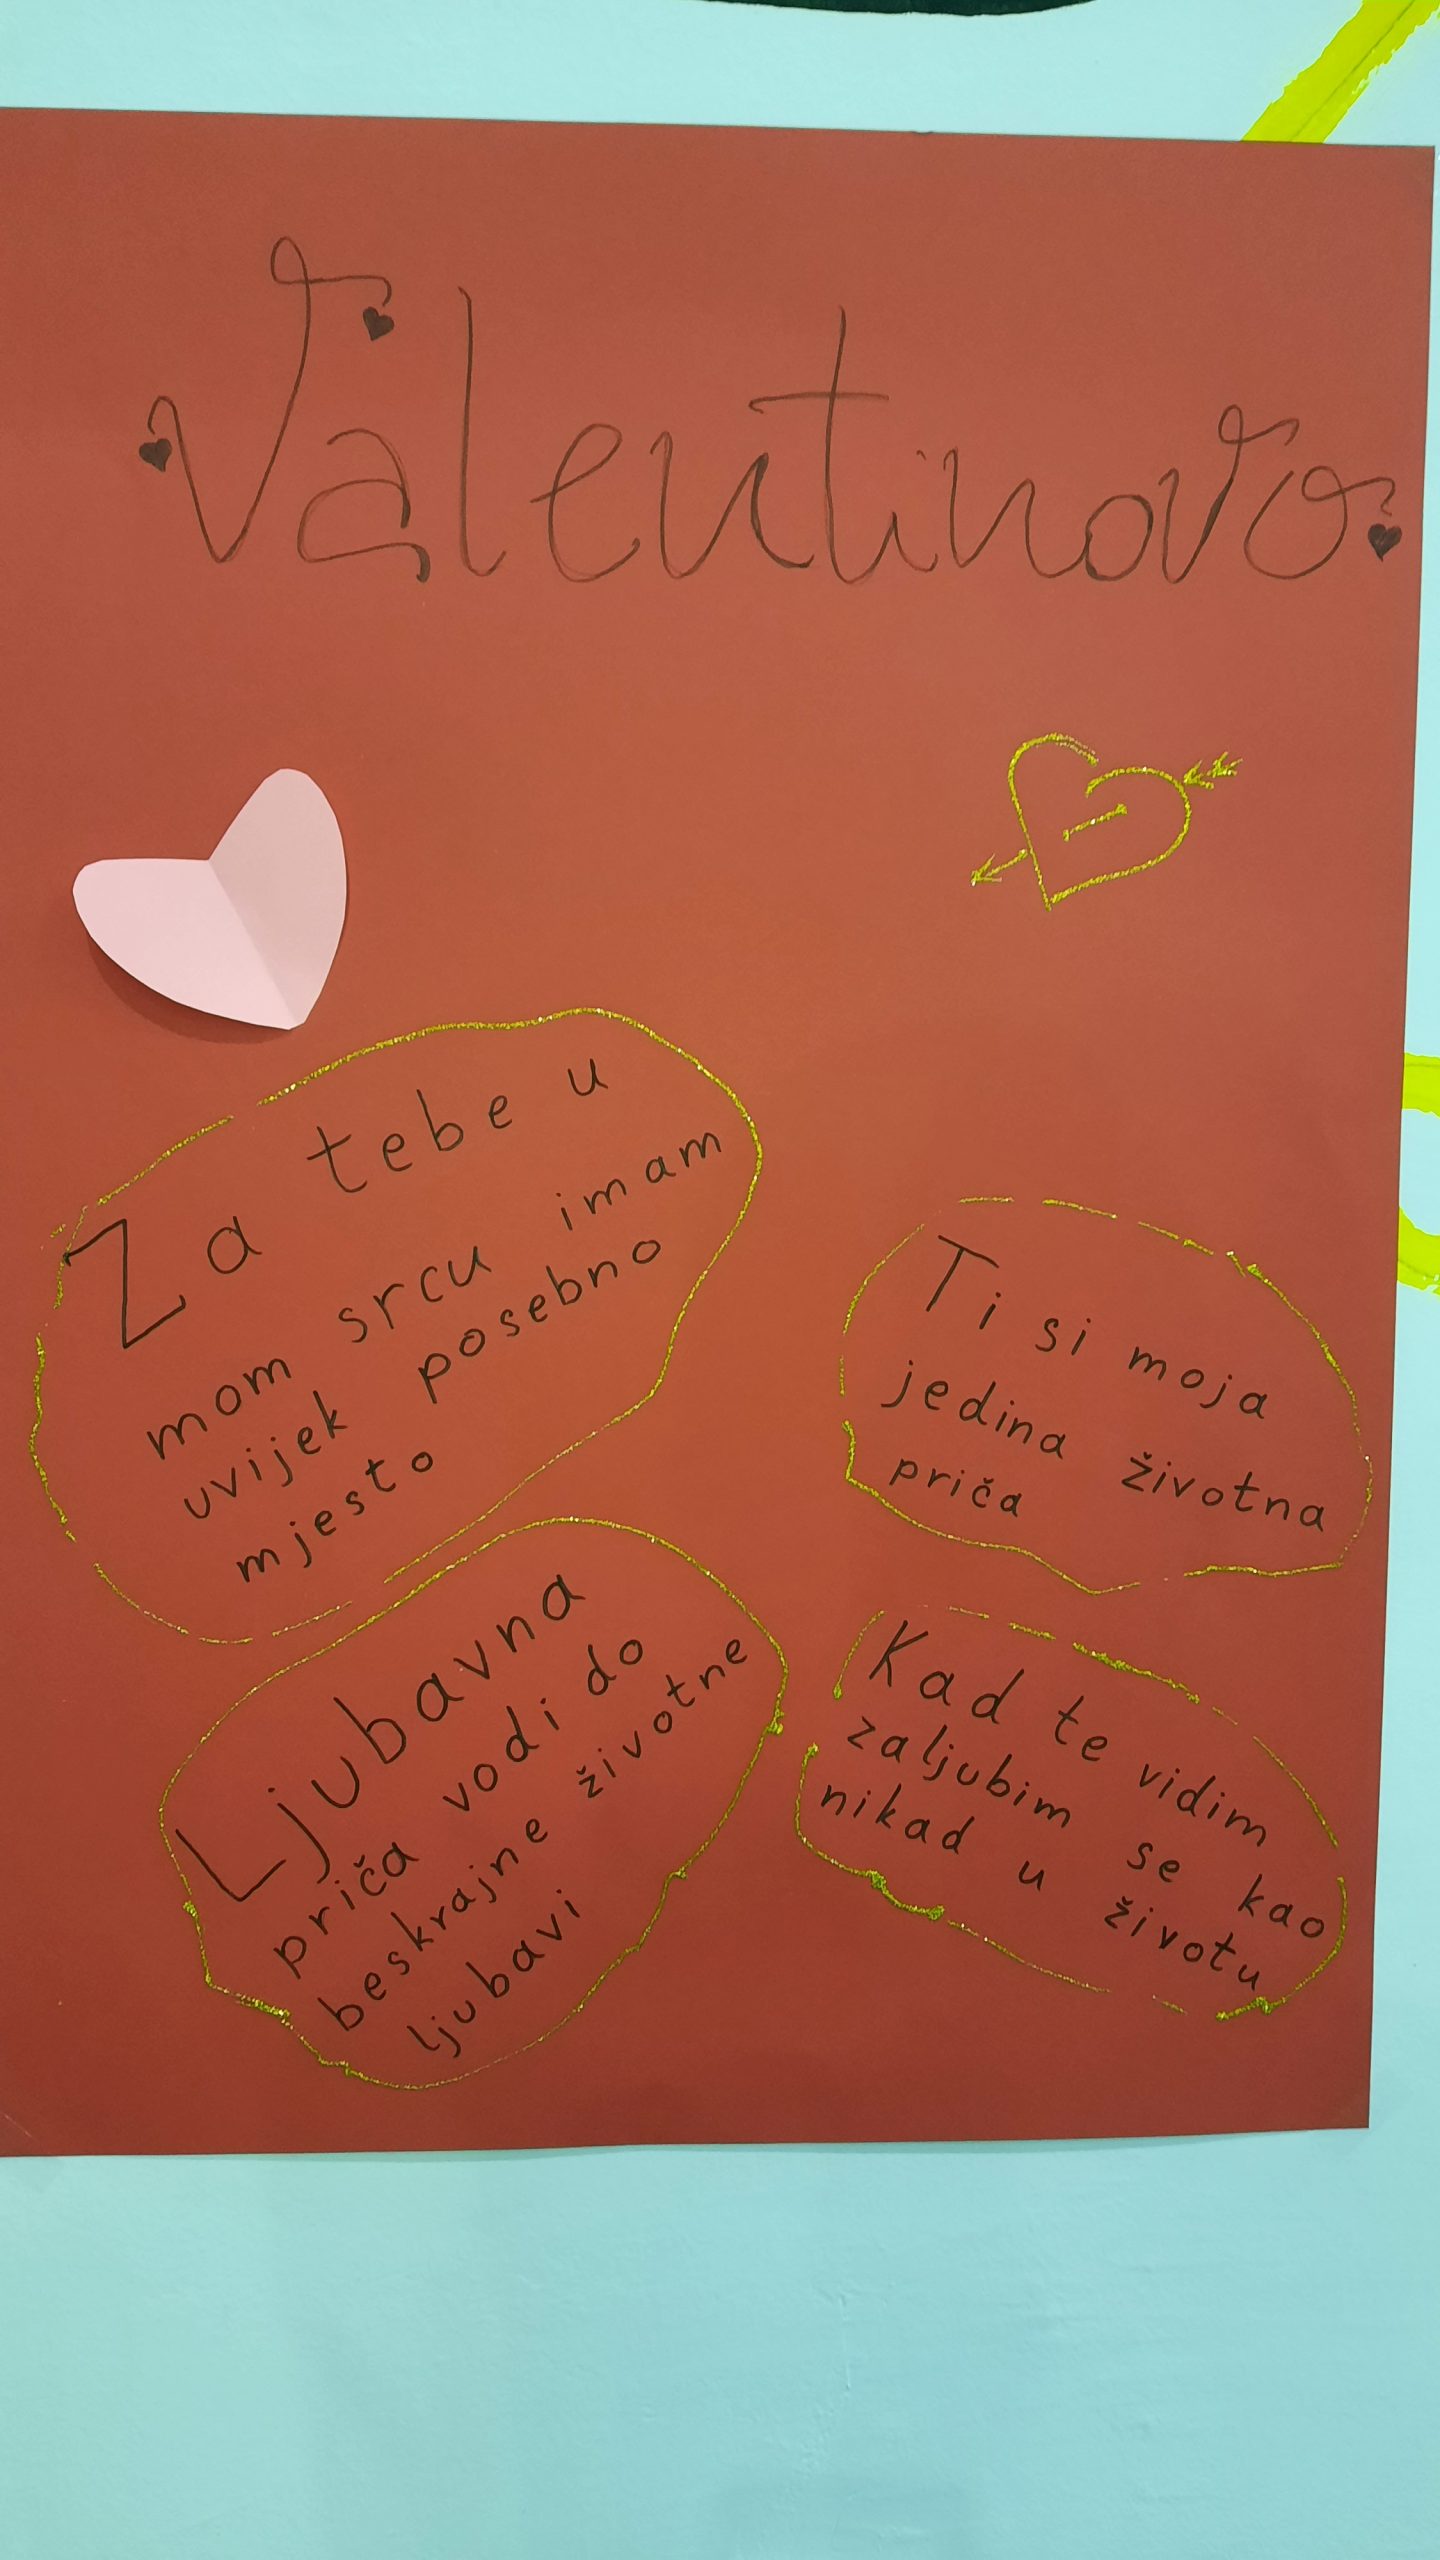 Valentinovo
Za tebe u
mom srcu imam
uvijek posebno
mjesto
Ti si moja
jedina životna
priča
Ljubavna
priča vodi do
beskrajne životne
ljubavi
Kad te vidim
zaljubim se kao
nikad u životu